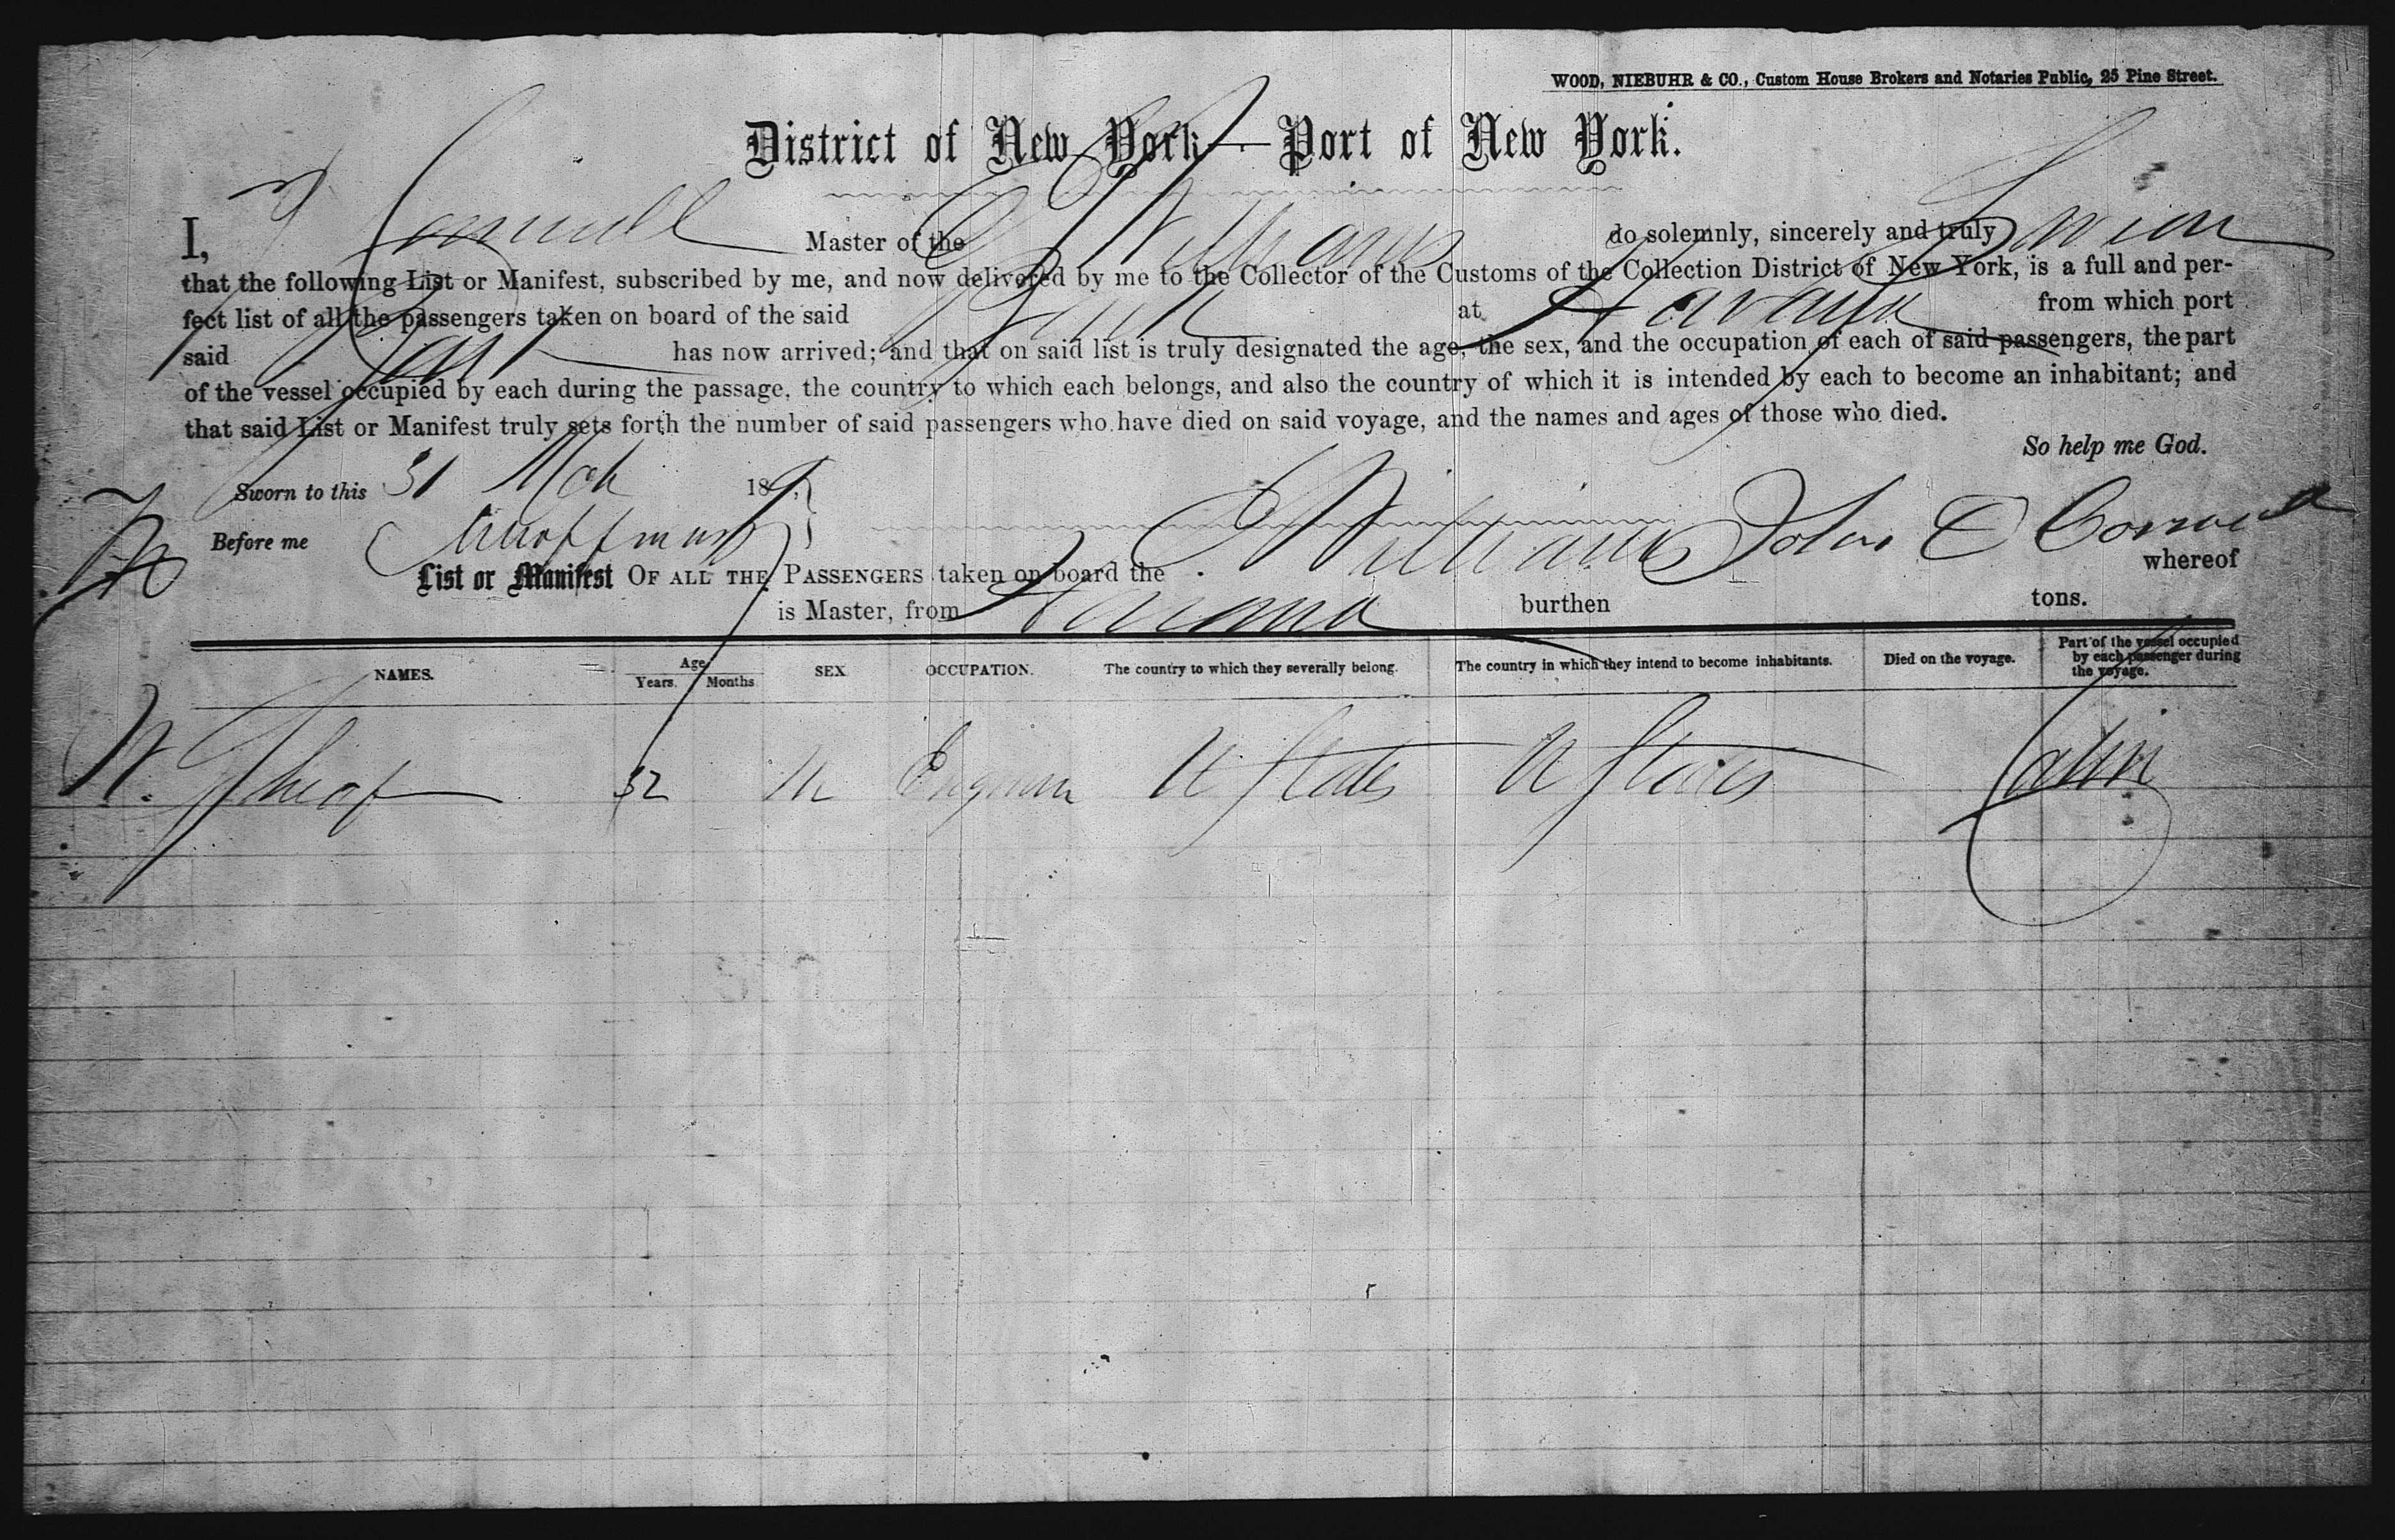 WOOD, NIEBUHR & CO., Custom House Brokers and Notaries Public, 25 Pine Street.
District of New York—Port of New York.
I, Master of the Williams do solemnly, sincerely and truly Swear
that the following List or Manifest, subscribed by me, and now delivered by me to the Collector of the Customs of the Collection District of New York, is a full and per-
fect list of all the passengers taken on board of the said Bark at Havana from which port
said Bark has now arrived; and that on said list is truly designated the age, the sex, and the occupation of each of said passengers, the part
of the vessel occupied by each during the passage, the country to which each belongs, and also the country of which it is intended by each to become an inhabitant; and
that said List or Manifest truly sets forth the number of said passengers who have died on said voyage, and the names and ages of those who died.
So help me God.
Sworn to this 31 Mch 18
Before me
List or Manifest OF ALL THE PASSENGERS taken on board the Williams John whereof
is Master, from Havana burthen tons.
NAMES. Age Years. Months SEX OCCUPATION. The country to which they severally belong. The country in which they intend to become inhabitants. Died on the voyage. Part of the vessel occupied by each passenger during the voyage.
W. 32 M U States U States Cabin